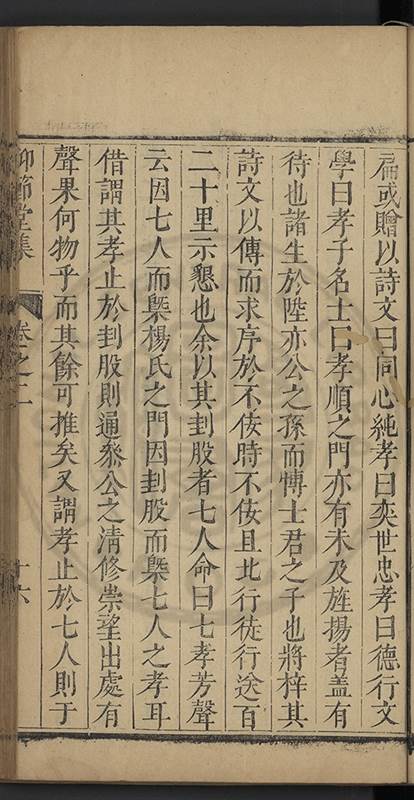 扁或贈以詩文曰同心純孝曰奕世忠孝曰德行文
學曰孝子名士曰孝順之門亦有未及旌揚者蓋有
待也諸生於陞亦公之孫而慱士君之子也將梓其
詩文以傳而求序於不佞時不佞且北行徒行送百
二十里示懇也余以其刲股者七人命曰七孝芳聲
云因七人而槩楊氏之門因刲股而槩七人之孝耳
借謂其孝止於刲股則通叅公之清修崇望出處有
聲果何物乎而其餘可推矣又謂孝止於七人則于
仰節堂集 卷之二 十六